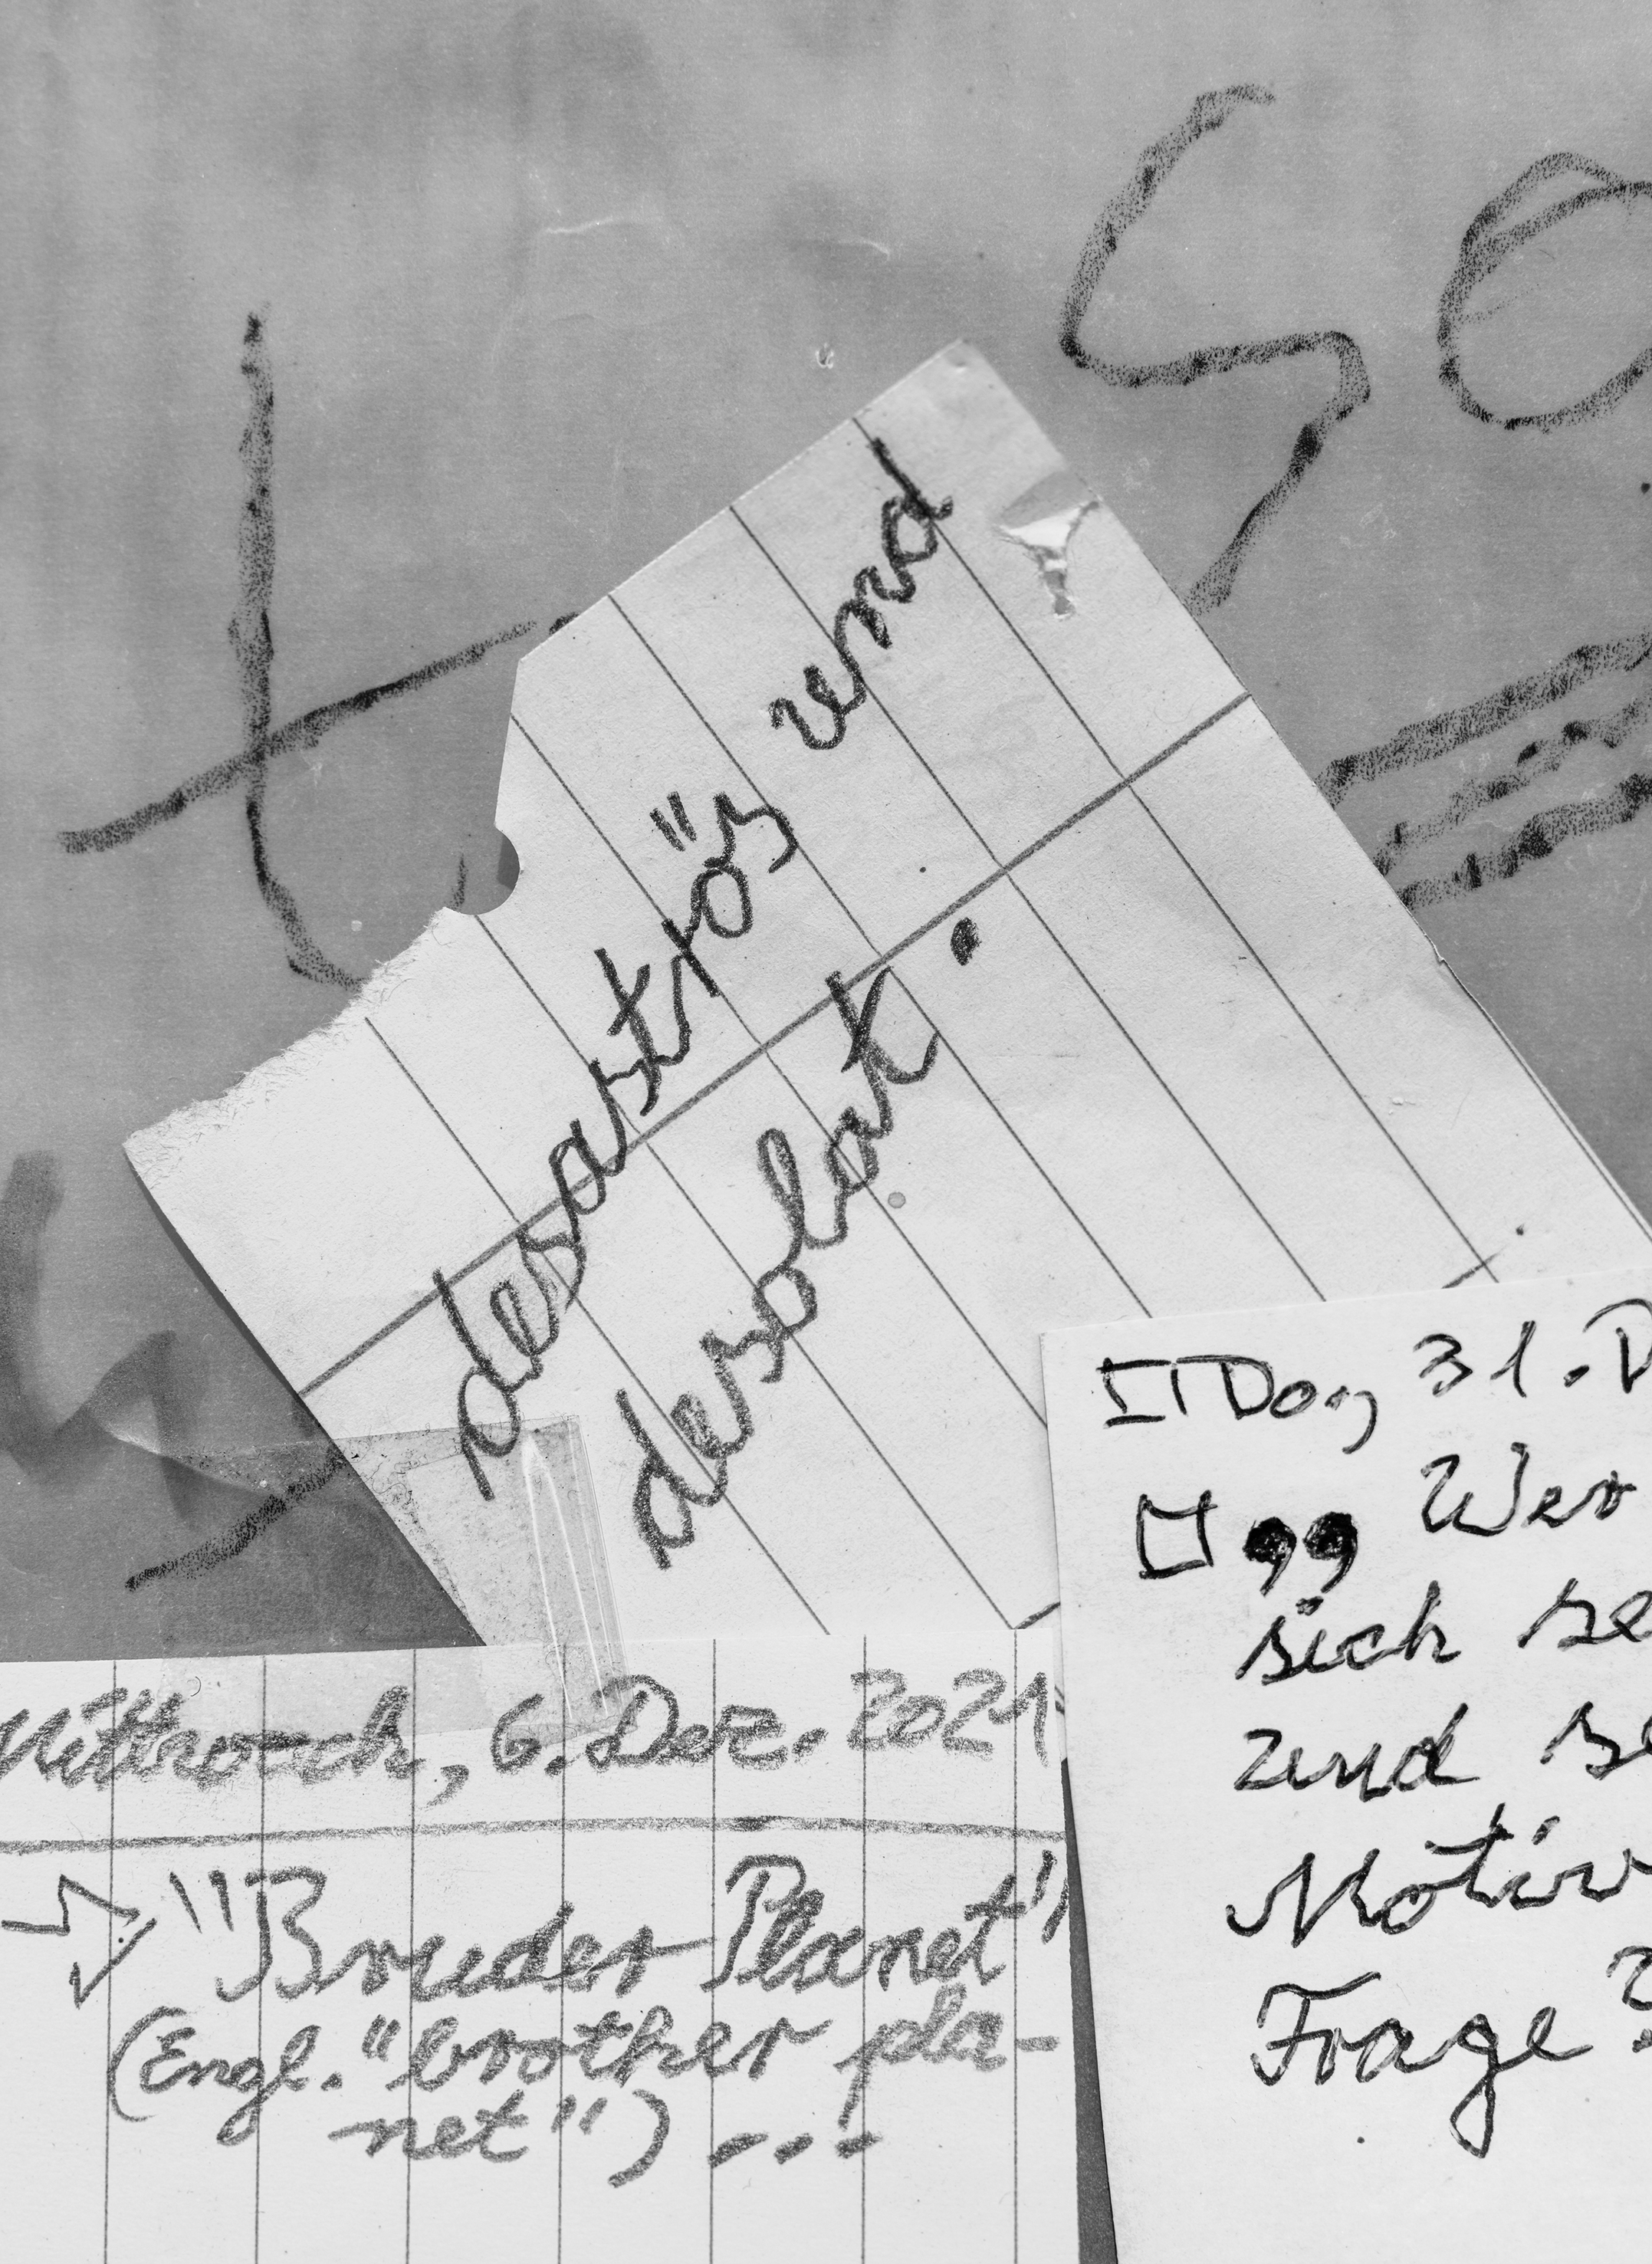 so
t
desaströs und
desolat.
Mittwoch, 6. Dez. 2021
"Bruder Planet"
(Engl. "brother pla-
net") ...
Do, 31. D
Wer
sich se
und se
Motiv
Frage